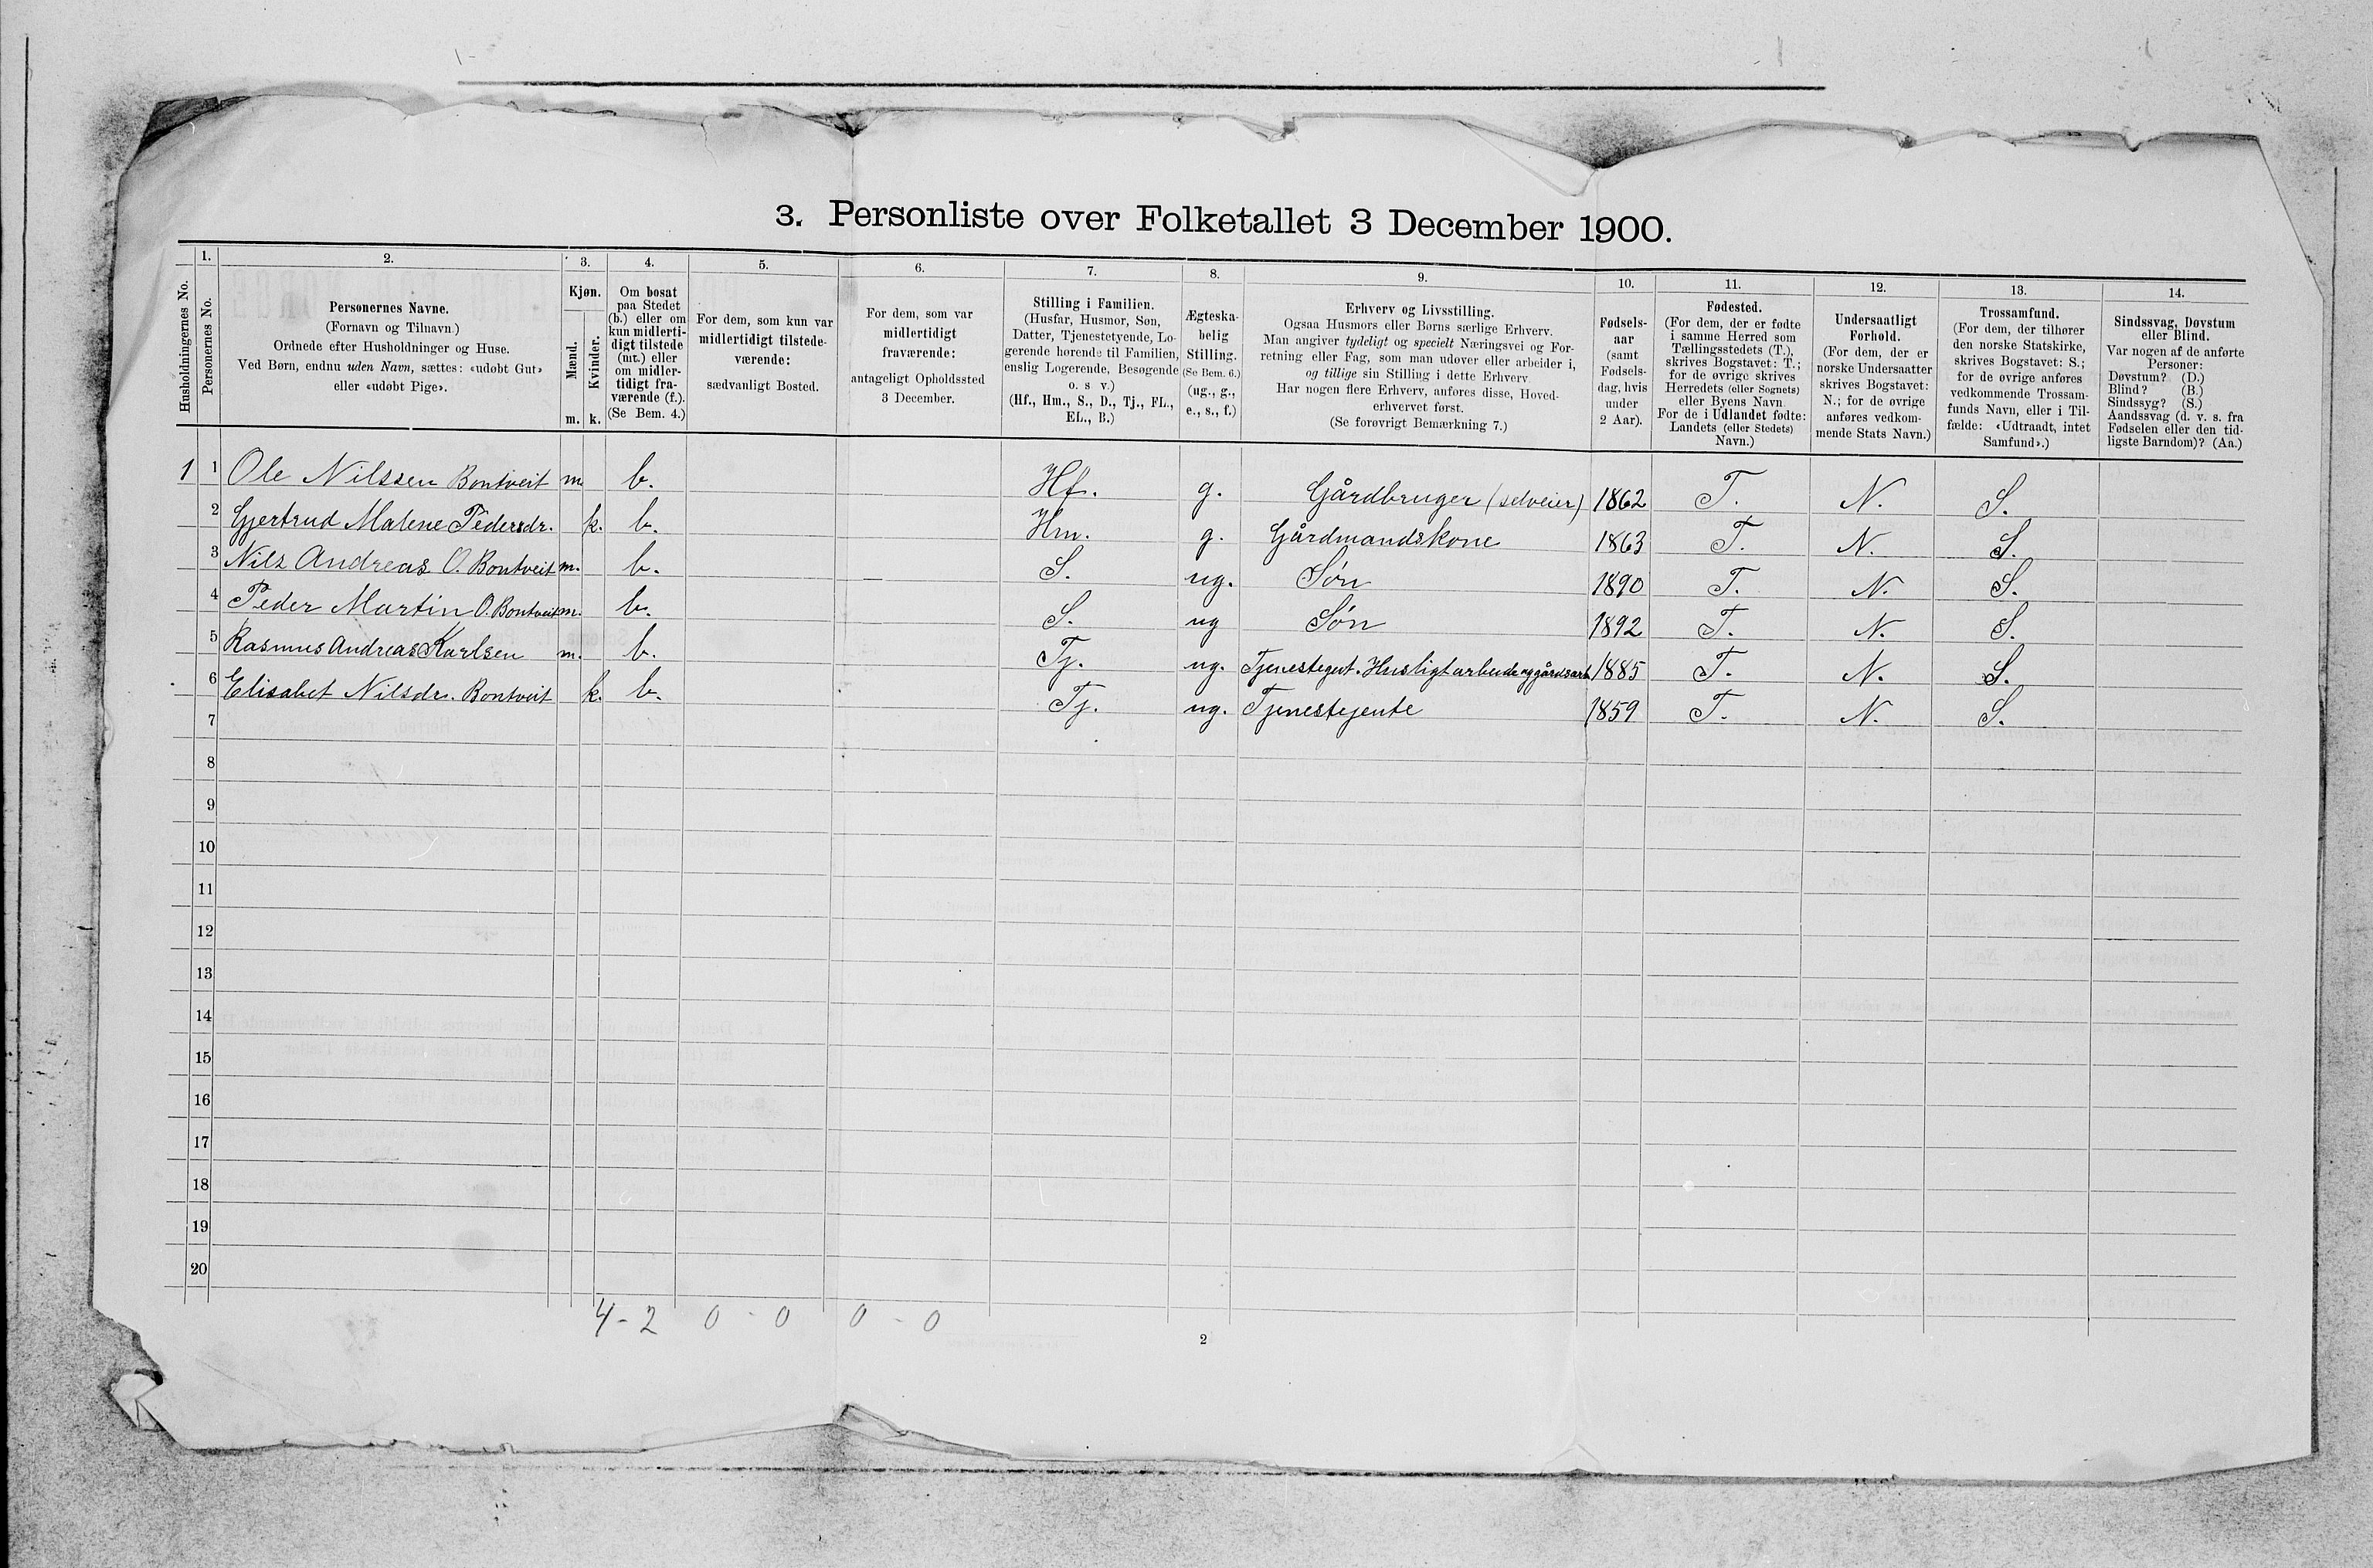 3. Personliste over Folketallet 3 December 1900.
Husholdningernes No.
1.
Personernes No.
2.
Personernes Navne.
(Fornavn og Tilnavn.)
Ordnede efter Husholdninger og Huse.
Ved Børn, endnu uden Navn, sættes: «udøbt Gut»
eller «udøbt Pige».
3.
Kjøn.
Mænd.
Kvinder.
m. k.
4.
Om bosat
paa Stedet
(b.) eller om
kun midlerti-
digt tilstede
(mt.) eller
om midler-
tidigt fra-
værende (f.).
(Se Bem. 4.)
5.
For dem, som kun var
midlertidigt tilstede-
værende:
sædvanligt Bosted.
6.
For dem, som var
midlertidigt
fraværende:
antageligt Opholdssted
3 December.
7.
Stilling i Familien.
(Husfar, Husmor, Søn,
Datter, Tjenestetyende, Lo-
gerende hørende til Familien,
enslig Logerende, Besøgende
o. s v.)
(Hf., Hm., S., D., Tj., FL.,
EL., B.)
8.
Ægteska-
belig
Stilling.
(Se Bem. 6.)
(ug., g.,
e., s., f.)
9.
Erhverv og Livsstilling.
Ogsaa Husmors eller Børns særlige Erhverv.
Man angiver tydeligt og specielt Næringsvei og For-
retning eller Fag, som man udøver eller arbeider i,
og tillige sin Stilling i dette Erhverv
Har nogen flere Erhverv, anføres disse, Hoved-
erhvervet først.
(Se forøvrigt Bemærkning 7.)
10.
Fødsels-
aar
(samt
Fødsels-
dag, hvis
under
2 Aar).
11.
Fødested.
(For dem, der er fødte
i samme Herred som
Tællingsstedets (T.),
skrives Bogstavet: T.;
for de øvrige skrives
Herredets (eller Sognets)
eller Byens Navn
For de i Udlandet fødte:
Landets (eller Stedets)
Navn.)
12.
Undersaatligt
Forhold.
(For dem, der er
norske Undersaatter
skrives Bogstavet:
N.; for de øvrige
anføres vedkom-
mende Stats Navn.)
13.
Trossamfund.
(For dem, der tilhører
den norske Statskirke,
skrives Bogstavet: S.;
for de øvrige anføres
vedkommende Trossam-
funds Navn, eller i Til-
fælde: «Udtraadt, intet
Samfund».)
14.
Sindssvag, Døvstum
eller Blind.
Var nogen af de anførte
Personer:
Døvstum? (D.)
Blind? (B.)
Sindssyg? (S.)
Aandssvag (d. v. s. fra
Fødselen eller den tid-
ligste Barndom)? (Aa.)
1 1 Ole Nilssen Bontveit m. b. Hf. g. Gårdbruger (selveier) 1862 T. N. S.
2 Gjertrud Malene Pedersdr. k. b. Hm. g. Gårdmandskone 1863 T. N. S.
3 Nils Andreas O. Bontveit m. b. S. ug. Søn 1890 T. N. S.
4 Peder Martin O. Bontveit m. b. S. ug Søn 1892 T. N. S.
5 Rasmus Andreas Karlsen m. b. Tj. ug. Tjenestegut. Husligt arbeide og gårdsarb 1885 T. N. S.
6 Elisabet Nilsdr. Bontveit k. b. Tj. ug. Tjenestejente 1859 T. N. S.
7
8
9
10
11
12
13
14
15
16
17
18
19
20
4 - 2 0 - 0 0 - 0
2